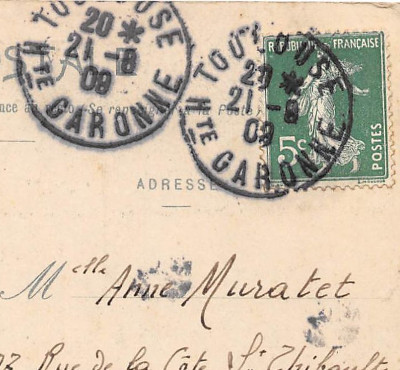 TOULOUSE
20 *
21 - 8
09
Hte GARONNE
TOULOUSE
20 *
21 - 8
09
Hte GARONNE
REPUBLIQUE FRANÇAISE
5c
POSTES
se renseigner à la Poste
ADRESSE
Melle Anne Muratet
Rue de la Côte St Thibault